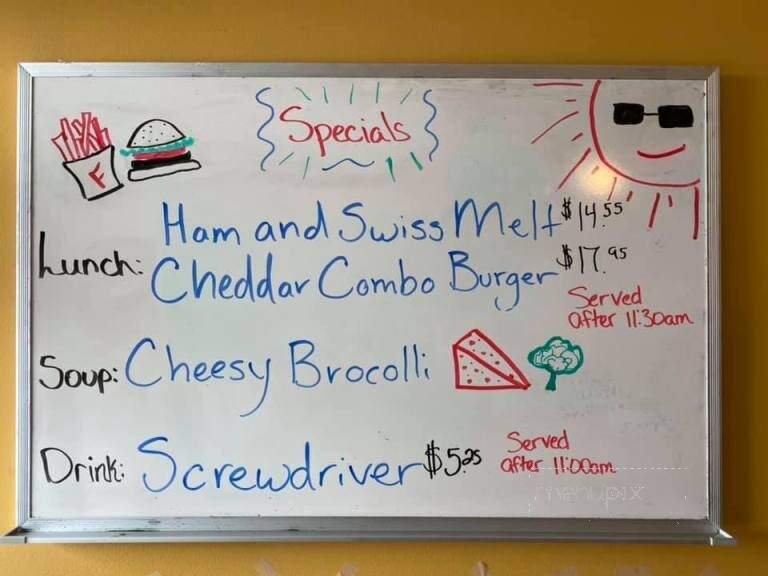 Specials
F
Lunch: Ham and Swiss Melt $14.55
Cheddar Combo Burger $17.95
Served
after 11:30am
Soup: Cheesy Brocolli
Drink: Screwdriver $5.25
Served
after 11:00am
menupix